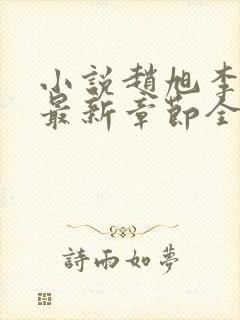 小説趙旭李
最新章節全
詩雨如夢